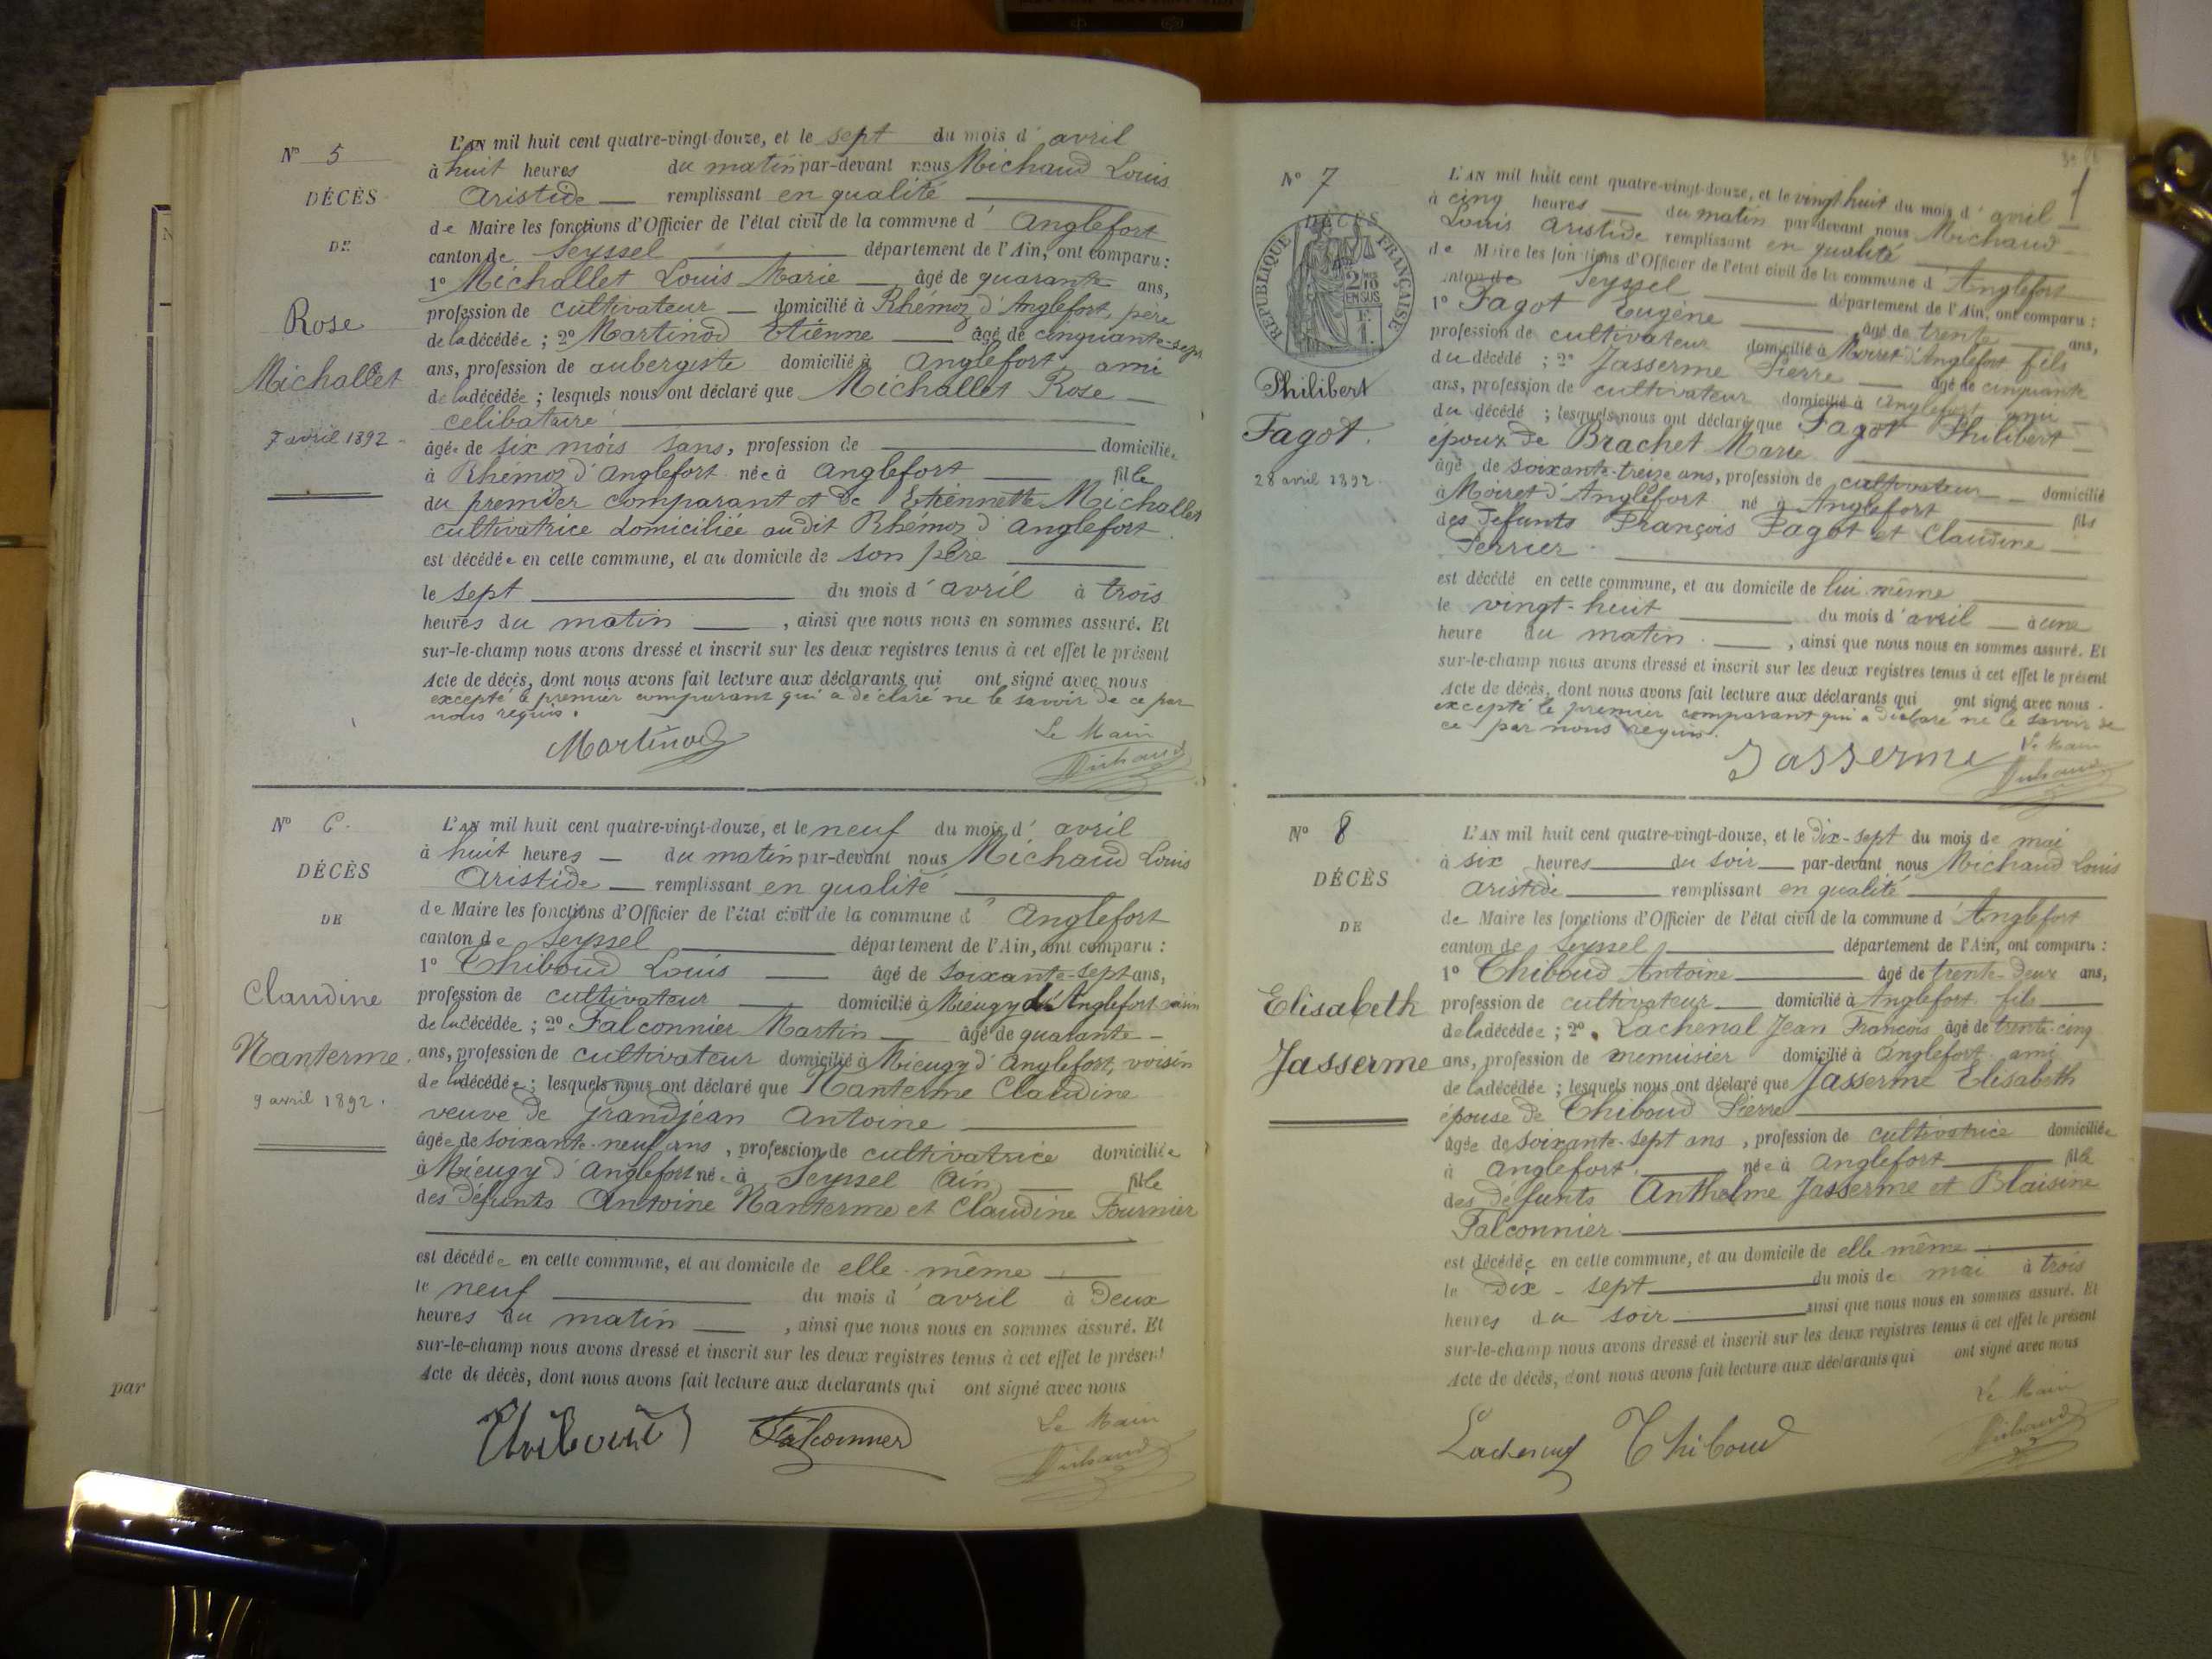 N° 5
DÉCÈS
DE
Rose
Michallet
7 avril 1892
L'AN mil huit cent quatre-vingt-douze, et le sept du mois d'avril
à huit heures du matin par-devant nous Michaud Louis
Aristide remplissant en qualité
de Maire les fonctions d'Officier de l'état civil de la commune d'Anglefort
canton de Seyssel département de l'Ain, ont comparu :
1° Michallet Louis Marie âgé de quarante ans,
profession de cultivateur domicilié à Rhémoz d'Anglefort, père
de la décédée ; 2° Martinod Etienne âgé de cinquante-sept
ans, profession de aubergiste domicilié à Anglefort ami
de la décédée ; lesquels nous ont déclaré que Michallet Rose
célibataire
âgée de six mois sans, profession de domiciliée
à Rhémoz d'Anglefort née à Anglefort fille
du premier comparant et de Etiennette Michallet
cultivatrice domiciliée audit Rhémoz d'Anglefort
est décédée en cette commune, et au domicile de son père
le sept du mois d'avril à trois
heures du matin , ainsi que nous nous en sommes assuré. Et
sur-le-champ nous avons dressé et inscrit sur les deux registres tenus à cet effet le présent
Acte de décès, dont nous avons fait lecture aux déclarants qui ont signé avec nous
excepté le premier comparant qui a déclaré ne le savoir de ce par
nous requis.
Martinod
Le Maire
Michaud
N° 6.
DÉCÈS
DE
Claudine
Nanterme.
9 avril 1892.
L'AN mil huit cent quatre-vingt-douze, et le neuf du mois d'avril
à huit heures du matin par-devant nous Michaud Louis
Aristide remplissant en qualité
de Maire les fonctions d'Officier de l'état civil de la commune d'Anglefort
canton de Seyssel département de l'Ain, ont comparu :
1° Thiboud Louis âgé de soixante-sept ans,
profession de cultivateur domicilié à Mieugy d'Anglefort
de la décédée ; 2° Falconnier Martin âgé de quarante
ans, profession de cultivateur domicilié à Mieugy d'Anglefort, voisin
de la décédée ; lesquels nous ont déclaré que Nanterme Claudine
veuve de Grandjean Antoine
âgée de soixante-neuf ans , profession de cultivatrice domiciliée
à Mieugy d'Anglefort née à Seyssel Ain fille
des défunts Antoine Nanterme et Claudine Fournier
est décédée en cette commune, et au domicile de elle-même
le neuf du mois d'avril à deux
heures du matin , ainsi que nous nous en sommes assuré. Et
sur-le-champ nous avons dressé et inscrit sur les deux registres tenus à cet effet le présent
Acte de décès, dont nous avons fait lecture aux déclarants qui ont signé avec nous
Thiboud Falconnier
Le Maire
Michaud
par
N° 7
DÉCÈS
RÉPUBLIQUE FRANÇAISE
2/10 EN SUS
1.
Philibert
Fagot.
28 avril 1892.
1
L'AN mil huit cent quatre-vingt-douze, et le vingt huit du mois d'avril
à cinq heures du matin par-devant nous Michaud
Louis Aristide remplissant en qualité
de Maire les fonctions d'Officier de l'état civil de la commune d'Anglefort
canton de Seyssel département de l'Ain, ont comparu :
1° Fagot Eugène âgé de trente ans,
profession de cultivateur domicilié à Moiret d'Anglefort fils
du décédé ; 2° Jasserme Pierre âgé de cinquante
ans, profession de cultivateur domicilié à Anglefort ami
du décédé ; lesquels nous ont déclaré que Fagot Philibert
époux de Brachet Marie
âgé de soixante-treize ans, profession de cultivateur domicilié
à Moiret d'Anglefort né à Anglefort fils
des défunts François Fagot et Claudine
Perrier
est décédé en cette commune, et au domicile de lui même
le vingt-huit du mois d'avril à une
heure du matin , ainsi que nous nous en sommes assuré. Et
sur-le-champ nous avons dressé et inscrit sur les deux registres tenus à cet effet le présent
Acte de décès, dont nous avons fait lecture aux déclarants qui ont signé avec nous
excepté le premier comparant qui a déclaré ne le savoir de
ce par nous requis.
Jasserme
Le Maire
Michaud
N° 8
DÉCÈS
DE
Elisabeth
Jasserme
L'AN mil huit cent quatre-vingt-douze, et le dix-sept du mois de mai
à six heures du soir par-devant nous Michaud Louis
Aristide remplissant en qualité
de Maire les fonctions d'Officier de l'état civil de la commune d'Anglefort
canton de Seyssel département de l'Ain, ont comparu :
1° Thiboud Antoine âgé de trente-deux ans,
profession de cultivateur domicilié à Anglefort fils
de la décédée ; 2° Lachenal Jean François âgé de trente-cinq
ans, profession de menuisier domicilié à Anglefort ami
de la décédée ; lesquels nous ont déclaré que Jasserme Elisabeth
épouse de Thiboud Pierre
âgée de soixante-sept ans , profession de cultivatrice domiciliée
à Anglefort. née à Anglefort fille
des défunts Anthelme Jasserme et Blaisine
Falconnier
est décédée en cette commune, et au domicile de elle même
le dix-sept du mois de mai à trois
heures du soir ainsi que nous nous en sommes assuré. Et
sur-le-champ nous avons dressé et inscrit sur les deux registres tenus à cet effet le présent
Acte de décès, dont nous avons fait lecture aux déclarants qui ont signé avec nous
Lachenal Thiboud
Le Maire
Michaud